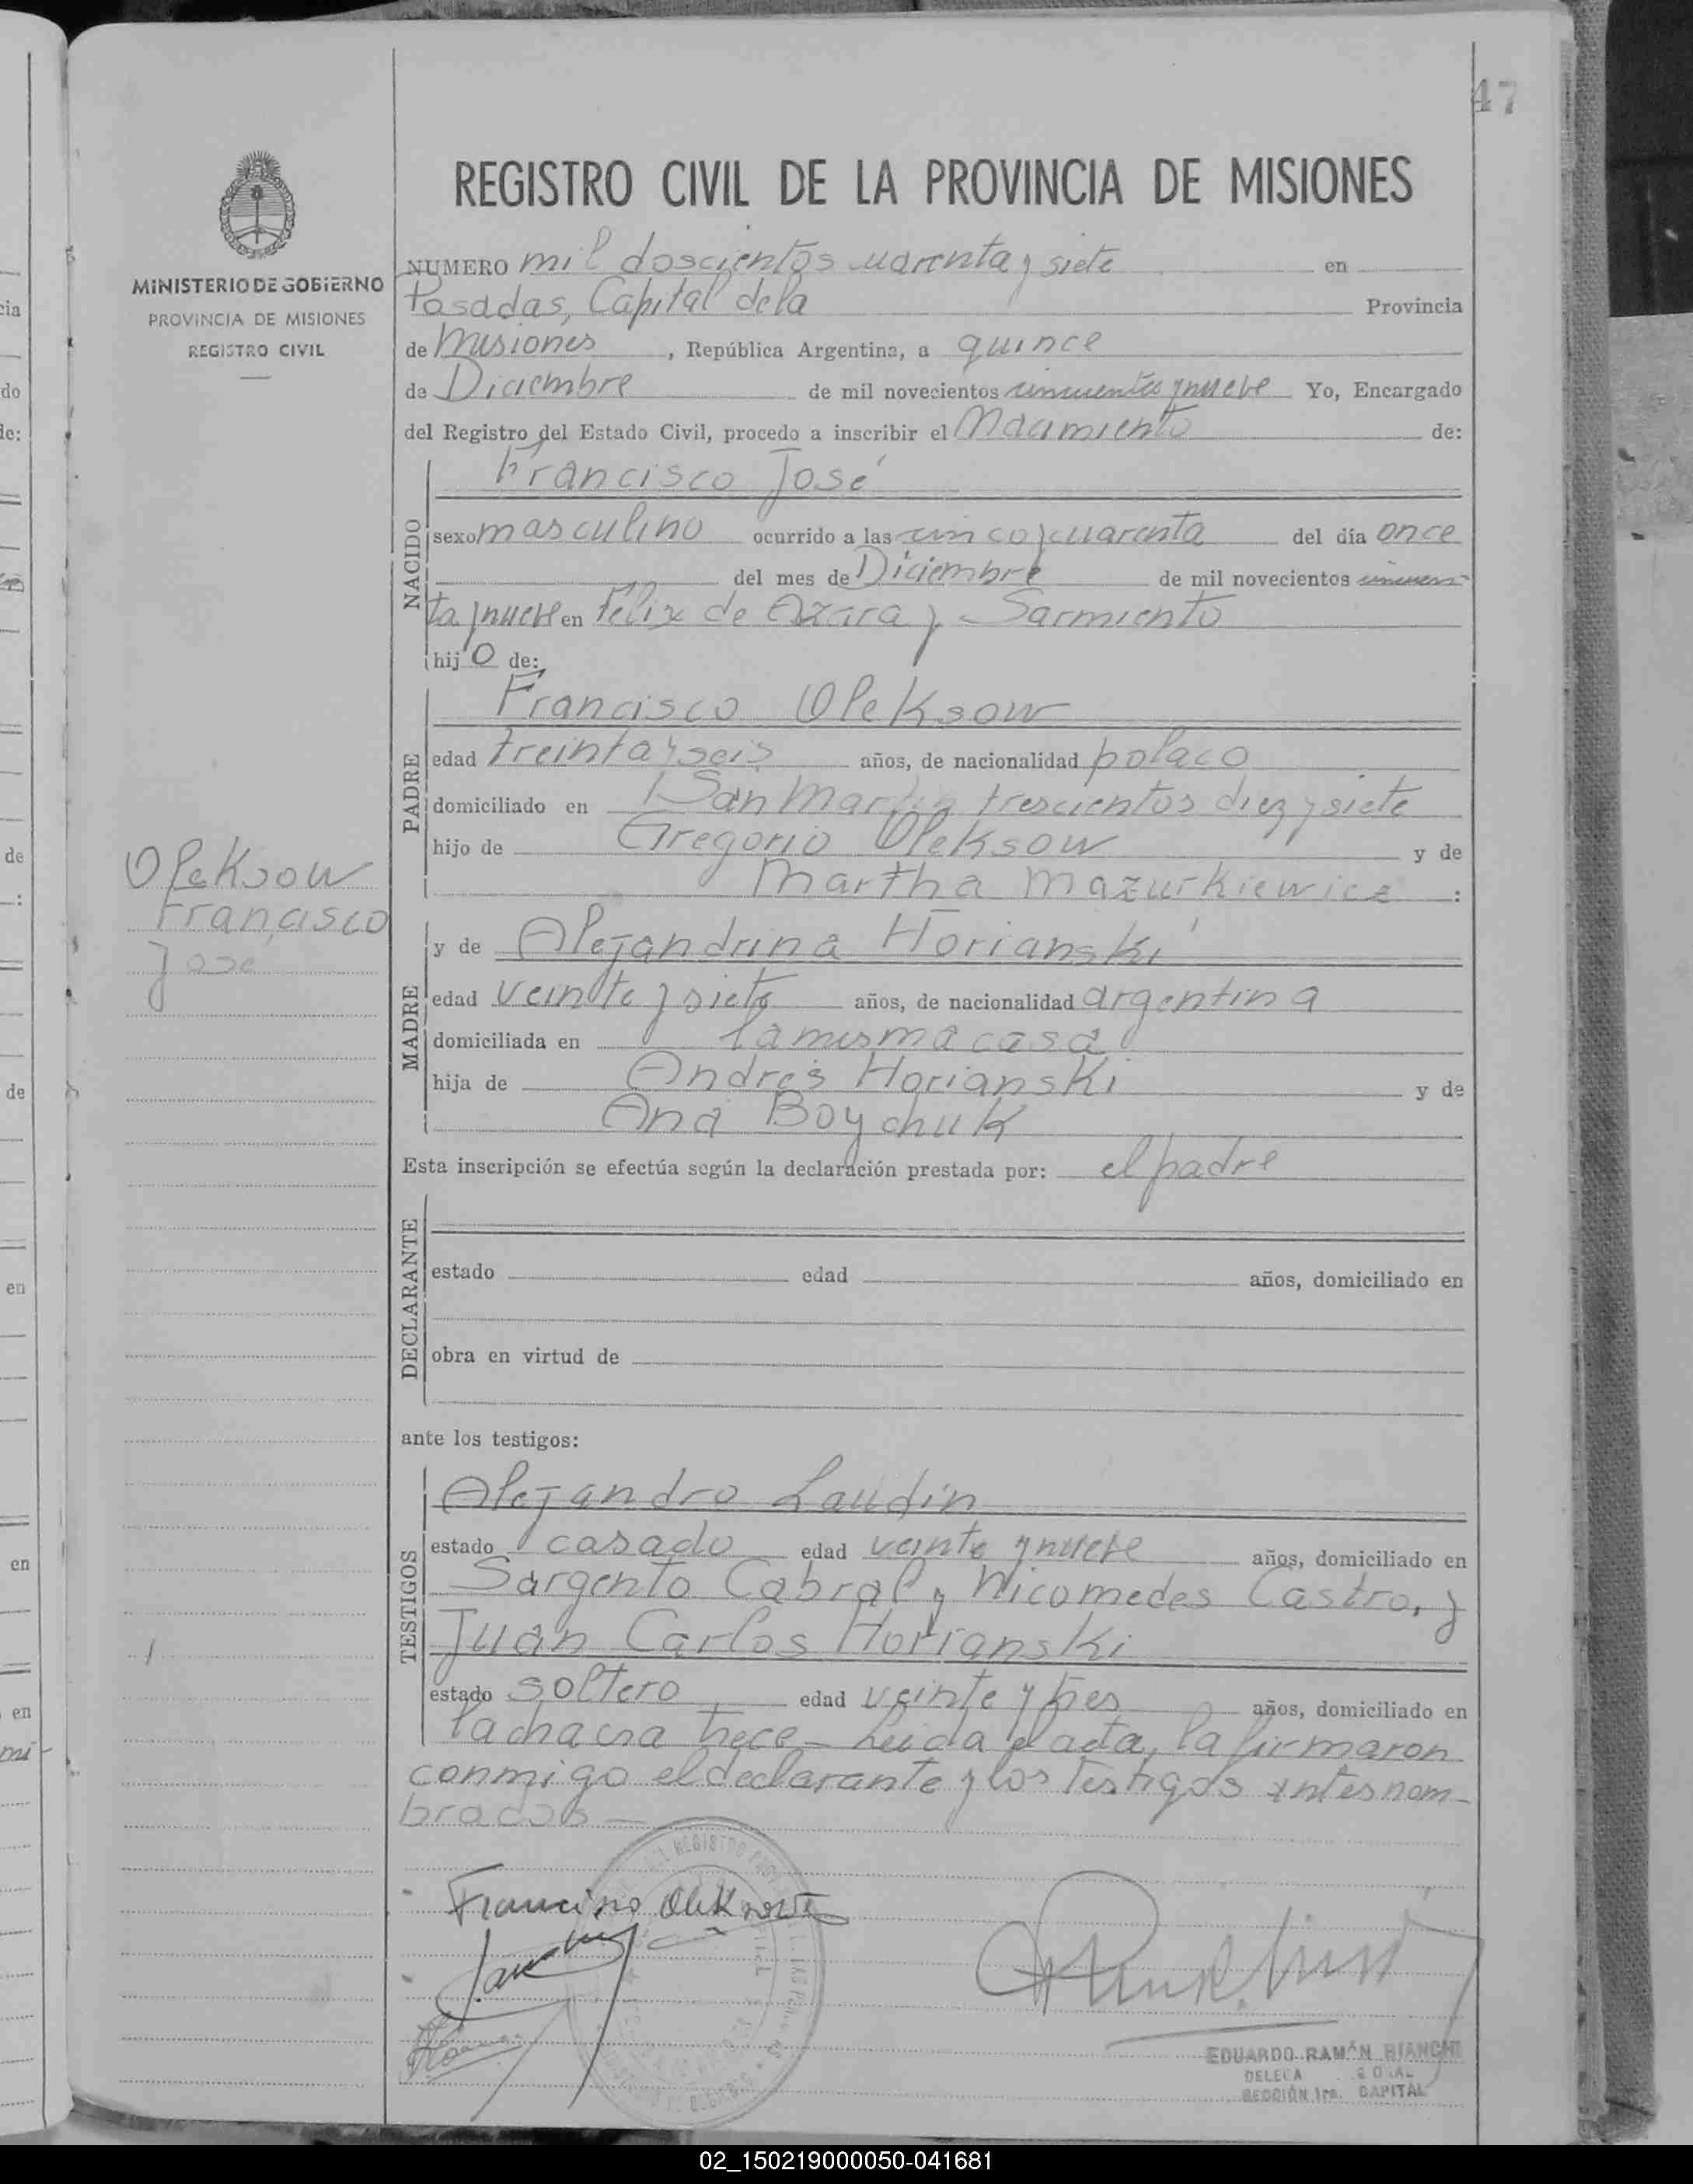 47
REGISTRO CIVIL DE LA PROVINCIA DE MISIONES
MINISTERIO DE GOBIERNO
PROVINCIA DE MISIONES
REGISTRO CIVIL
NUMERO mil doscientos cuarenta y siete en
Posadas, Capital de la Provincia
de Misiones, República Argentina, a quince
de Diciembre de mil novecientos cincuenta y nueve Yo, Encargado
del Registro del Estado Civil, procedo a inscribir el Nacimiento de:
Francisco José
NACIDO
sexo masculino ocurrido a las cinco y cuarenta del día once
del mes de Diciembre de mil novecientos cincuen
ta y nueve en Félix de Azara y Sarmiento
hijo de:
Francisco Oleksow
PADRE
edad treinta y seis años, de nacionalidad polaco
domiciliado en San Martin trescientos diez y siete
hijo de Gregorio Oleksow y de
Martha Mazurkiewicz :
Oleksow
Francisco
José
y de Alejandrina Horianski
MADRE
edad veinte y siete años, de nacionalidad argentina
domiciliada en la misma casa
hija de Andrés Horianski y de
Ana Boychuk
Esta inscripción se efectúa según la declaración prestada por: el padre
DECLARANTE
estado edad años, domiciliado en
obra en virtud de
ante los testigos:
TESTIGOS
Alejandro Laudin
estado casado edad veinte y nueve años, domiciliado en
Sargento Cabral y Nicomedes Castro, y
Juan Carlos Horianski
estado soltero, edad veinte y tres años, domiciliado en
la chacra trece - Leida el acta, la firmaron
conmigo el declarante y los testigos antes nom-
brados
Francisco Oleksow
EDUARDO RAMÓN BIANCHI
SECCIÓN 1ra. CAPITAL
02_150219000050-041681